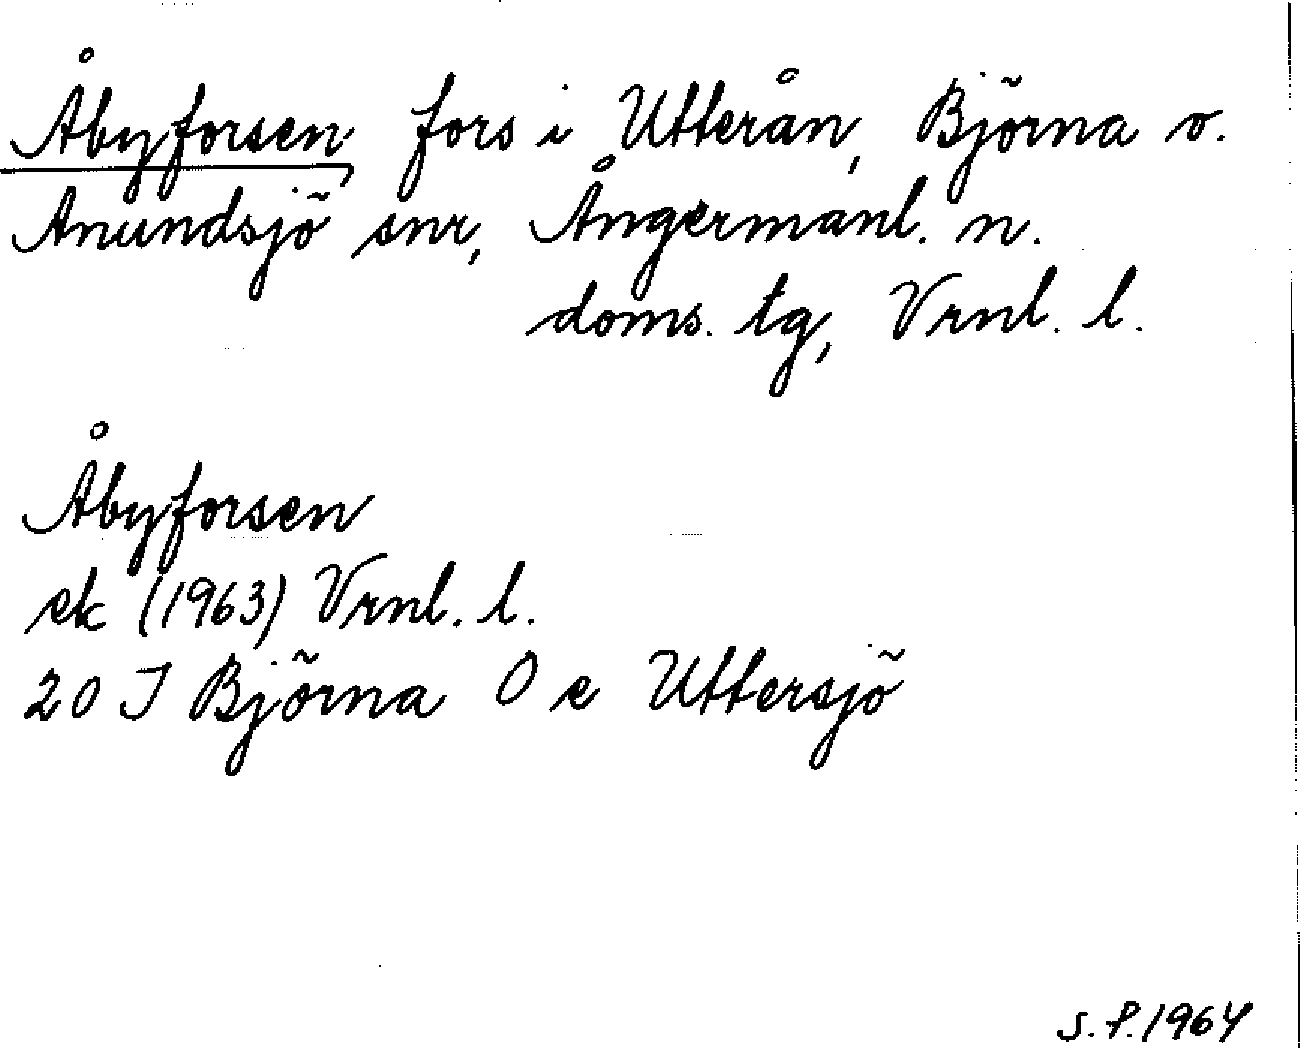 Åbyforsen, fors i Utterån, Björna o.
Anundsjö snr, Ångermanl. n.
doms. tg, Vrnl. l.
Åbyforsen
ek (1963) Vrnl. l.
20 I Björna O e Uttersjö
S.P. 1964